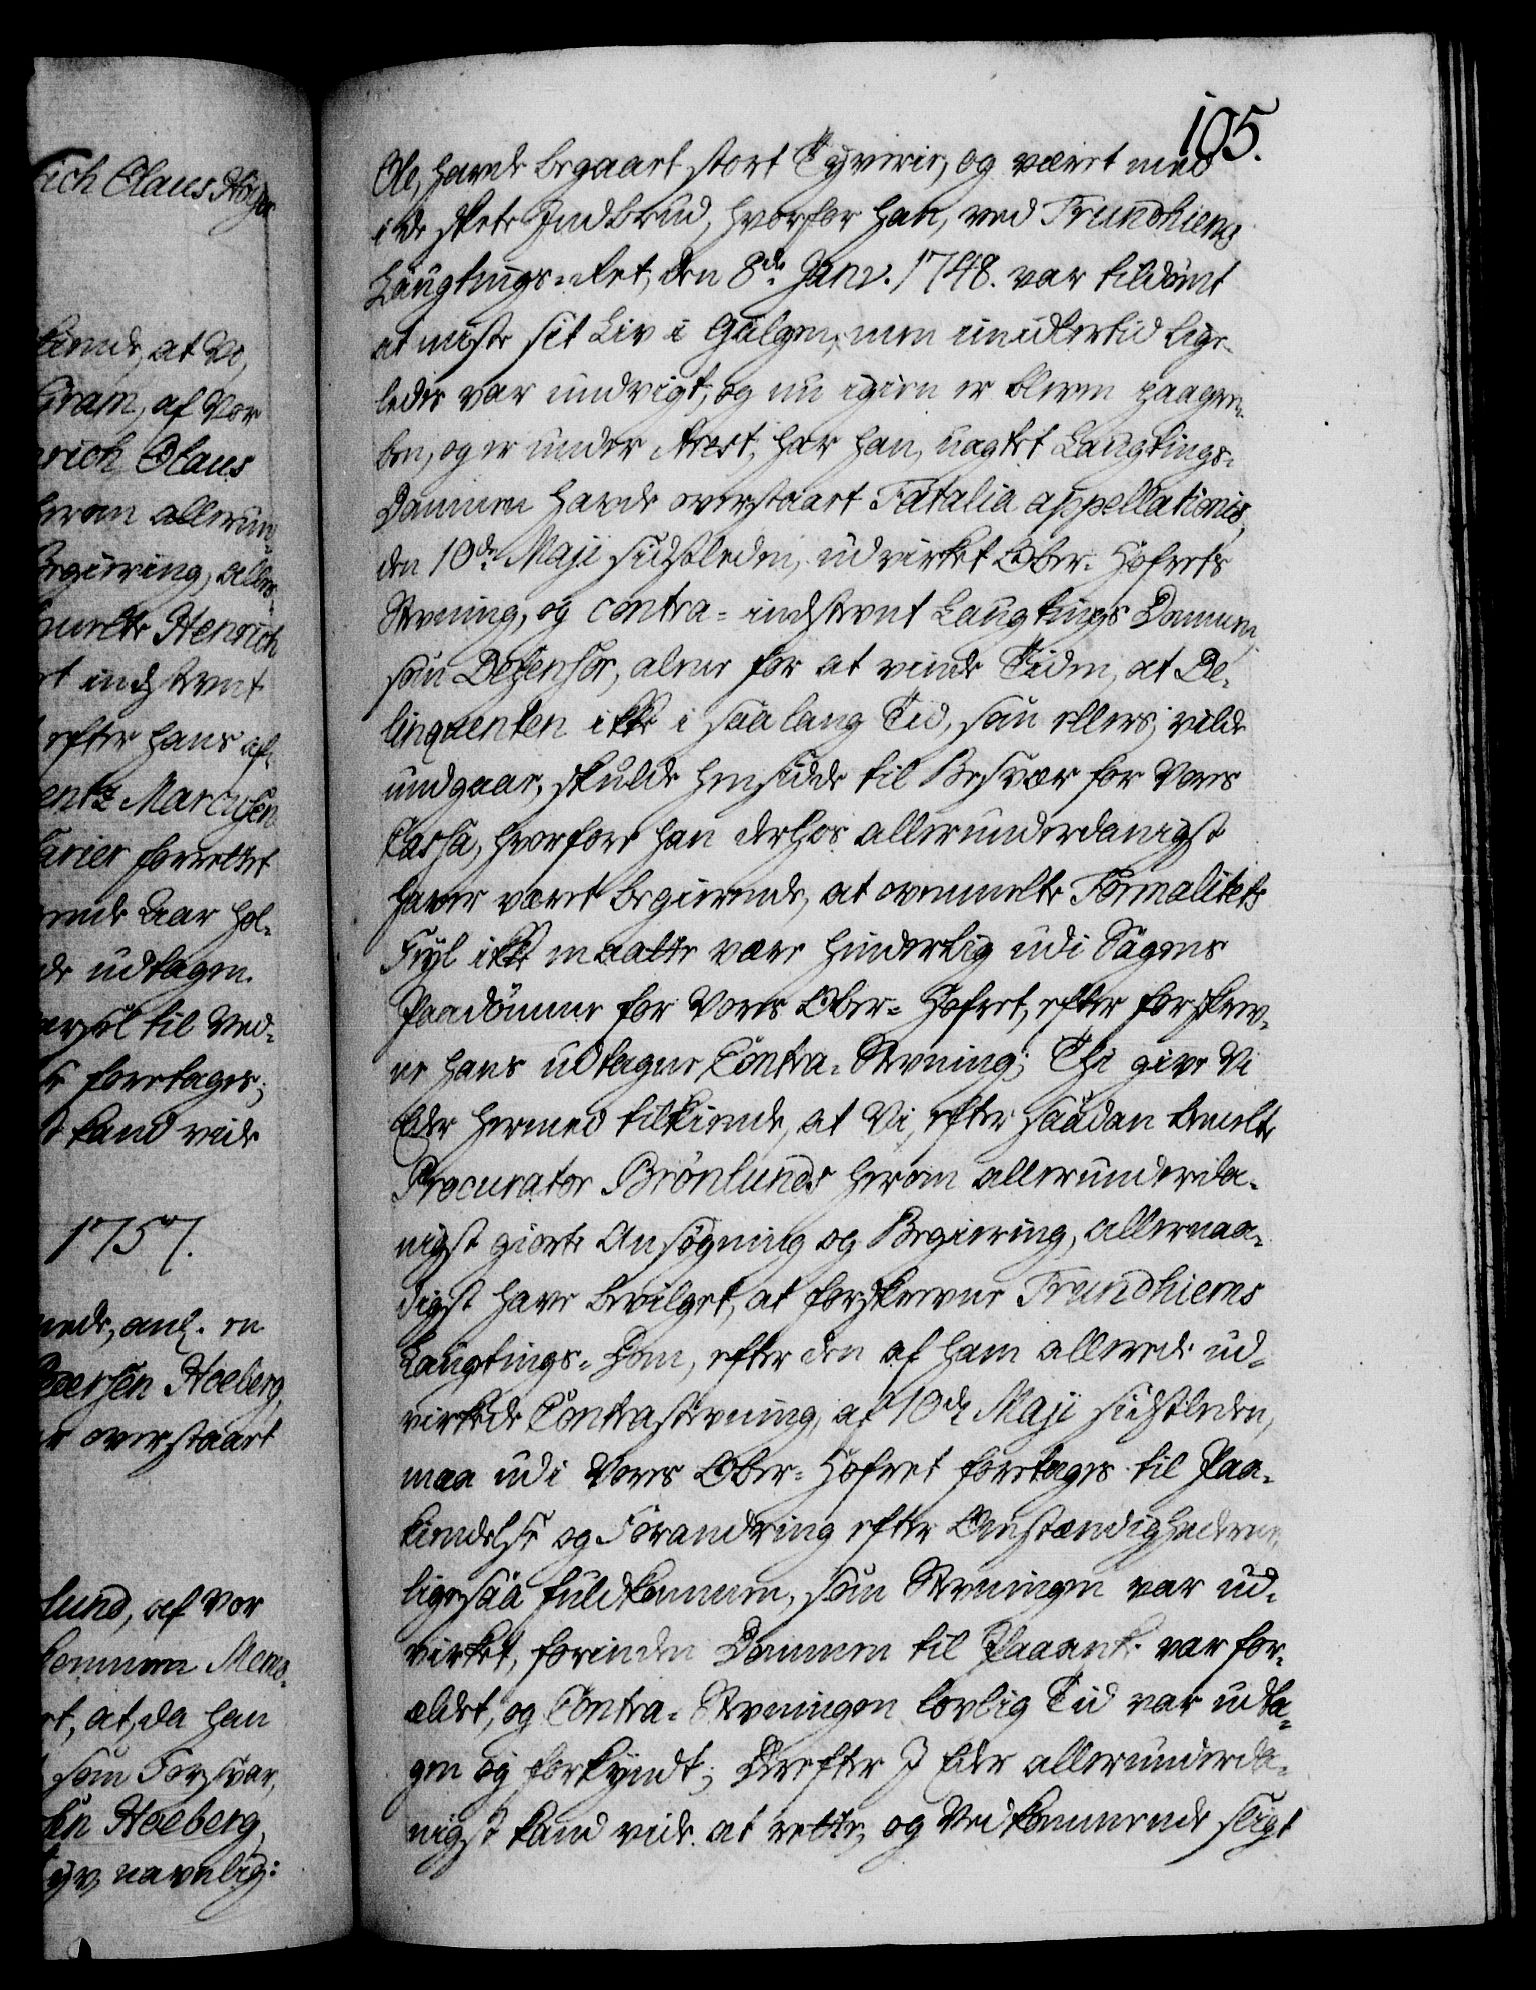 rich Claus Höyer
kiende, at Vi,
Gram, af Vor
nrich Claus
herom allerun-
Begiering, aller-
Henrich
indstevnt
efter hans af-
entz Marcusen
forrettet
Aar hol-
de udtagen.
til Ved-
foretages;
kand vide
1757.
Pedersen Hoeberg,
overstaaet
lund, af Vor
kommen Memo-
at, da han
som Forsvar,
Hoeberg,
navnlig:
105.
Ole, havde begaaet stort Tyverie, og været med
i de skete Indbrud, hvorfor han, ved Trundhiems
Laugtings-Ret, den 8de Janv. 1748. var tildömt
at miste sit Liv i Galgen, men imidlertid lige-
ledes var undvigt, og nu igien er bleven paagre-
ben, og er under Arrest, har han, uagtet Laugtings-
Dommen havde overstaaet Fatalia appellationis,
den 10de Maji sidstleden, udvirket Ober-Hofrets
Stevning, og contra-indstevnt Laugtings Dommen,
som Defensor, alene for at vinde Tiden, at De-
linquenten ikke i saa lang Tid, som ellers vilde
undgaae, skulde hensidde til Besvær for Vores
Cassa, hvorfore han derhos allerunderdanigst
haver været begierende, at ovenmelte Formalitets
Feyl ikke maatte være hinderlig udi Sagens
Paadömme for Vores Ober-Hofret, efter forskrev-
ne hans udtagne Contra-Stevning; Thi give Vi
Eder hermed tilkiende, at Vi, efter saadan bemelte
Procurator Brönlunds herom allerunderda-
nigst giorte Ansögning og Begiering, allernaa-
digst have bevilget, at forskrevne Trundhiems
Laugtings-Dom, efter den af ham allerede ud-
virkede Contrastevning, af 10de Maji sidstleden,
maa udi Vores Ober-Hofret foretages til Paa-
kiendelse og Forandring efter Omstændighederne,
ligesaa fuldkommen, som Stevningen var ud-
virket, forinden Dommen til Paaank. var for-
ældet, og Contra-Stevningen lovlig Tid var udta-
gen og forkyndt; Derefter I Eder allerunderda-
nigst kand vide at rette, og Vedkommende sligt